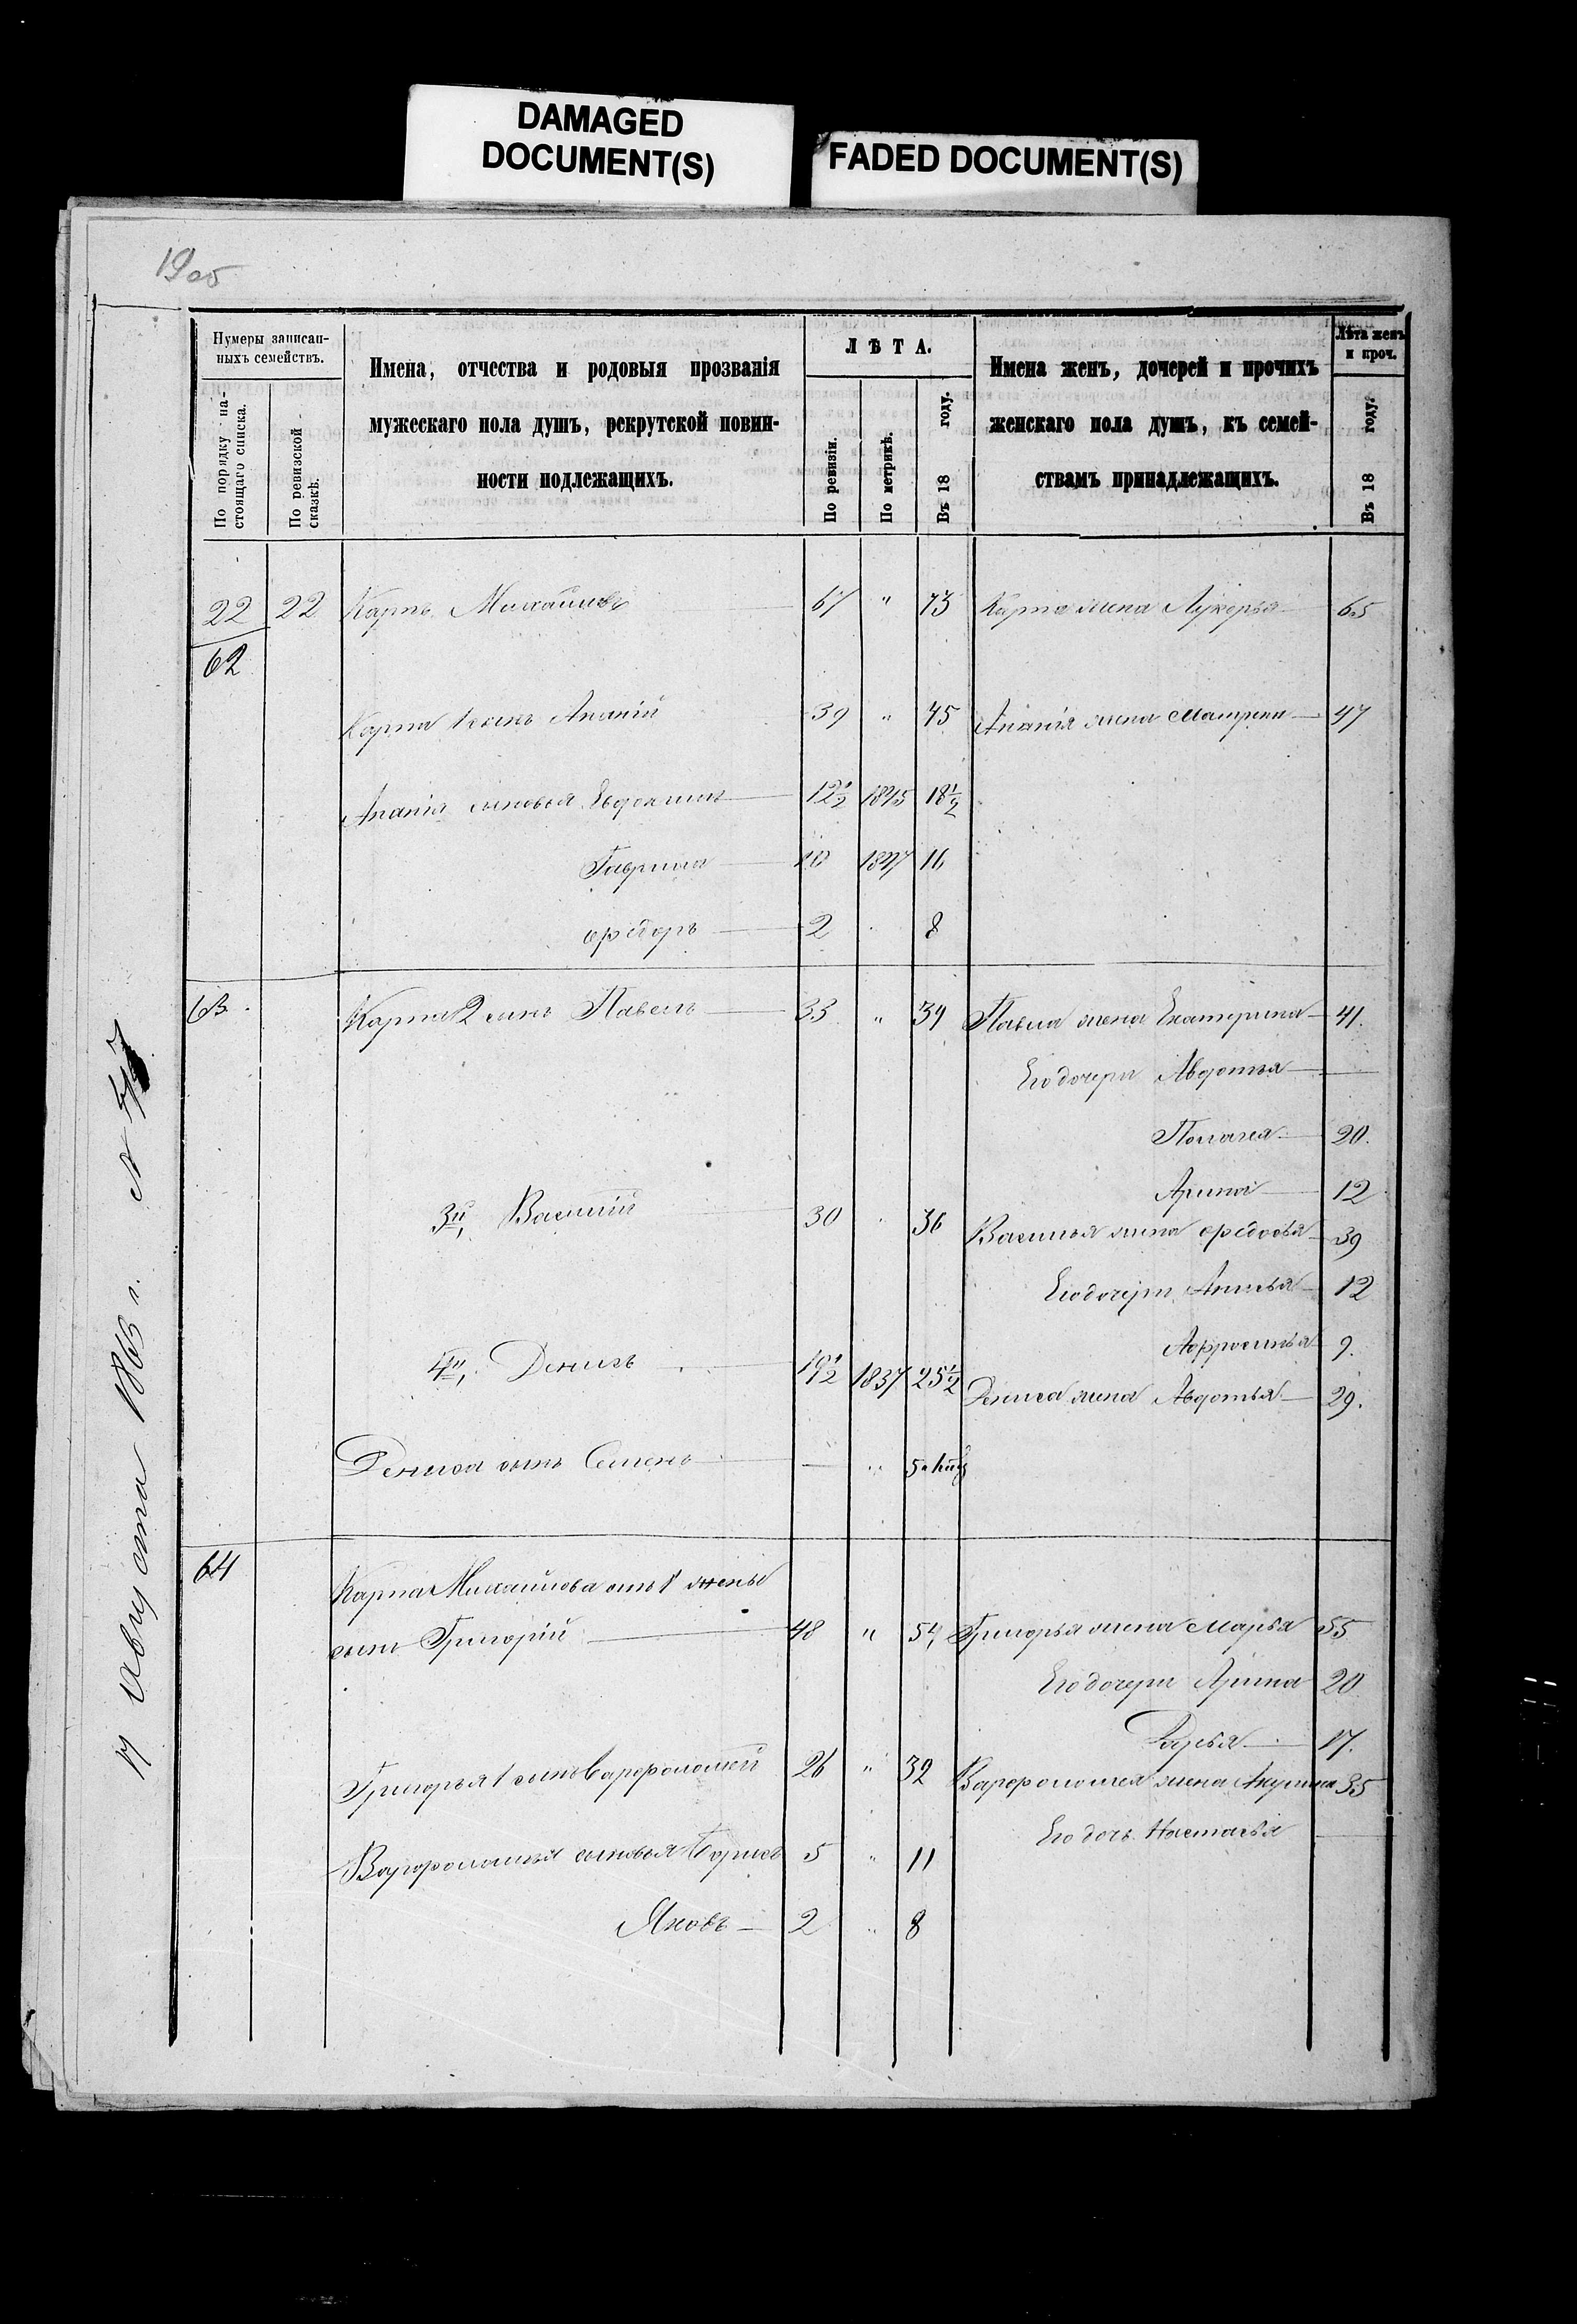 DAMAGED
DOCUMENT(S)
FADED DOCUMENT(S)
19об
Нумеры записан-
ныхъ семействъ.
По порядку на-
стоящаго списка.
По ревизской
сказкѣ.
Имена, отчества и родовыя прозванія
мужескаго пола душъ, рекрутской повин-
ности подлежащихъ.
ЛѢТА.
По ревизіи.
По метрикѣ.
Въ 18 году.
Имена женъ, дочерей и прочихъ
женскаго пола душъ, къ семей-
ствамъ принадлежащихъ.
Лѣта женъ
и проч.
Въ 18 году.
22 22 Карпъ Михайловъ 67 " 73 Карпа жена Лукерья 65
62
Карпа 1 сынъ Ананій 39 " 45 Ананія жена Матрена 47
Ананія сыновья Евдокимъ 12 1/2 1845 18 1/2
Гаврила 10 1847 16
Ѳедоръ 2 8
63 Карпа 2 сынъ Павелъ 33 " 39 Павла жена Екатерина 41.
Его дочери Авдотья
Полагея 20.
Арина 12
3й, Василій 30 36 Василья жена Ѳедосья 39
Его дочери Анисья 12
Афросинья 9.
4й, Денисъ 19 1/2 1837 25 1/2 Дениса жена Авдотья 29.
Дениса сынъ Семенъ — "
64
Карпа Михайлова отъ 1 жены
сынъ Григорій 48 " 54, Григорья жена Марья 55
Его дочери Арина 20
Дарья 17.
Григорья 1 сынъ Варфоломей 26 " 32 Варфоломея жена Акулина 35
Его дочь Настасья
Варфоломея сыновья Борисъ 5 " 11
Яковъ 2 " 8
17 Августа 1863 г. №